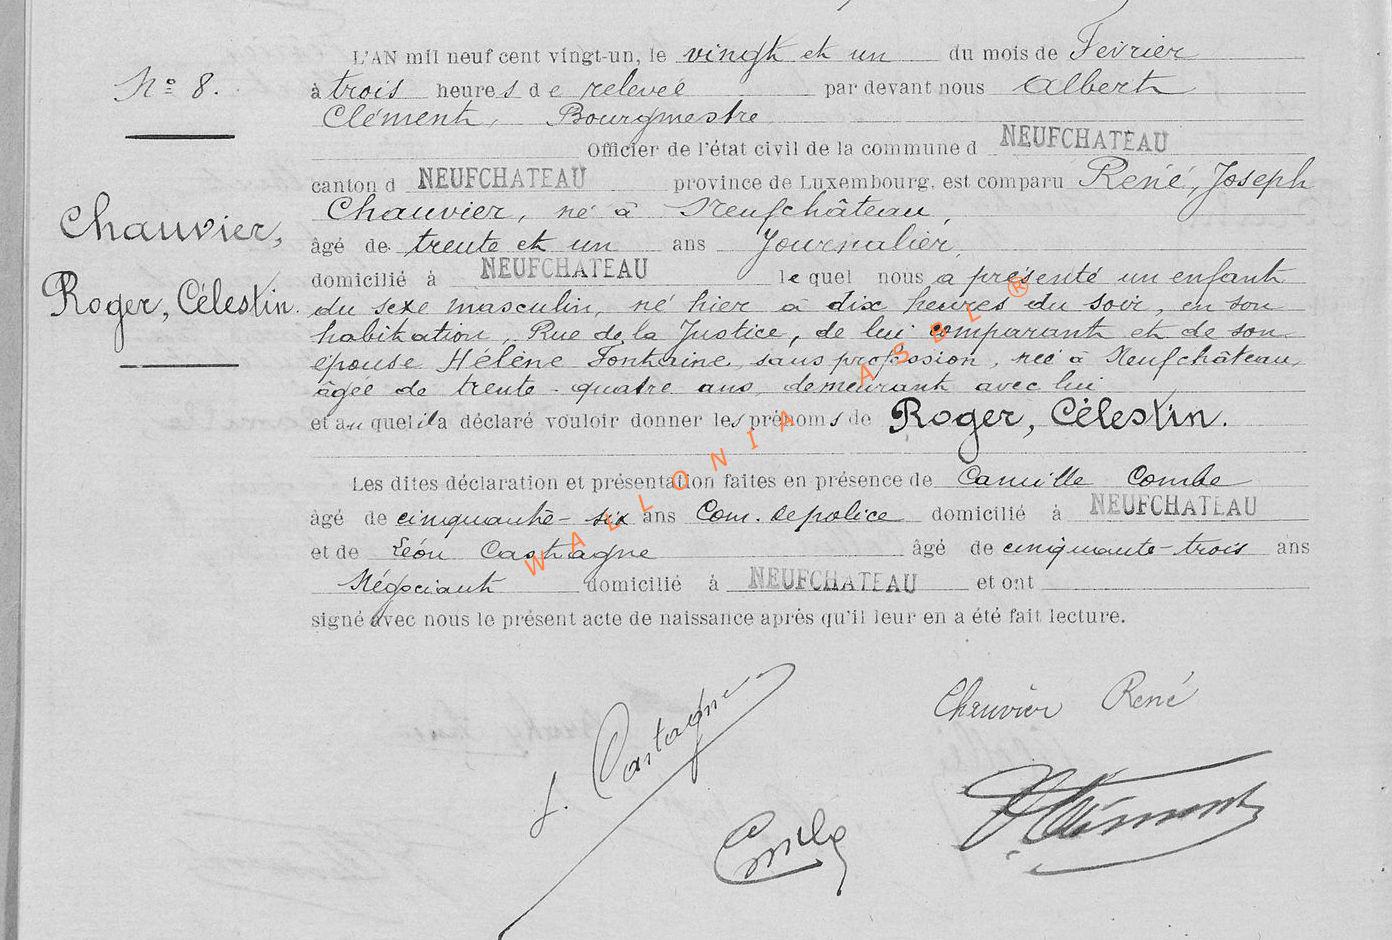 L'AN mil neuf cent vingt-un, le vingt et un du mois de Fevrier
N° 8.
à trois heures de relevée par devant nous Albert
Clément, Bourgmestre
Officier de l'état civil de la commune d NEUFCHATEAU
canton d NEUFCHATEAU province de Luxembourg, est comparu René, Joseph
Chauvier, né à Neufchâteau,
Chauvier,
âgé de trente et un ans Journalier,
domicilié à NEUFCHATEAU lequel nous a présenté un enfant
Roger, Célestin.
du sexe masculin, né hier à dix heures du soir, en son
habitation, Rue de la Justice, de lui comparant et de son
épouse Hélène Fontaine, sans profession, née à Neufchâteau,
âgée de trente-quatre ans, demeurant avec lui
et auquel il a déclaré vouloir donner les prénoms de Roger, Célestin.
Les dites déclaration et présentation faites en présence de Camille Combe
âgé de cinquante-six ans Com. de police domicilié à NEUFCHATEAU
et de Léon Castagne âgé de cinquante-trois ans
Négociant domicilié à NEUFCHATEAU et ont
signé avec nous le présent acte de naissance après qu'il leur en a été fait lecture.
WALLONIA ASBL ®
Chauvier René
L. Castagne
Clément